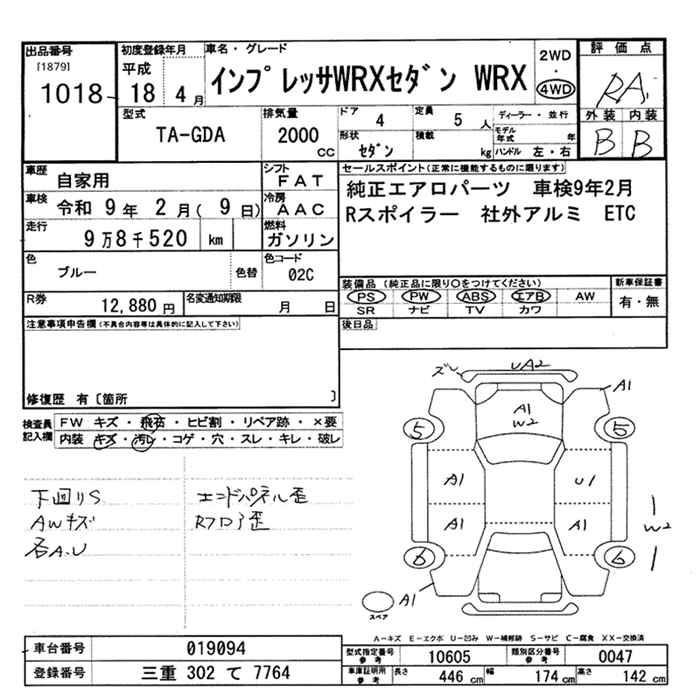 出品番号
[1879]
1018
初度登録年月
平成
18 4 月
車名・グレード
インプレッサWRXセダン WRX
2WD
・
4WD
評価点
RA
外装 内装
B B
型式
TA-GDA
排気量
2000
cc
ドア
4
定員
5 人
ディーラー・並行
形状
セダン
積載
kg
モデル年式 年
ハンドル 左・右
車歴
自家用
シフト
FAT
車検
令和 9 年 2 月( 9 日)
冷房
AAC
走行
9 万 8 千 520 km
燃料
ガソリン
色
ブルー
色替
色コード
02C
R券
12,880 円
名変通知期限
月 日
セールスポイント(正常に機能するものに限ります)
純正エアロパーツ 車検9年2月
Rスポイラー 社外アルミ ETC
装備品 (純正品に限り○をつけてください)
PS PW ABS エアB AW
SR ナビ TV カワ
新車保証書
有・無
後日品
注意事項申告欄(不具合内容等は具体的に記入して下さい)
修復歴 有〔箇所 〕
検査員記入欄
FW キズ・飛石・ヒビ割・リペア跡・×要
内装 キズ・汚レ・コゲ・穴・スレ・キレ・破レ
下回りS
AWキズ
各A.U
エンドパネル歪
Rフロア歪
ズレ UA2
A1
A1
W2
5 5
A1 U1
A1 A1
W2
6 6
A1
スペア
A-キズ E-エクボ U-凹み W-補修跡 S-サビ C-腐食 XX-交換済
車台番号
019094
登録番号
三重 302 て 7764
型式指定番号
参考
10605
類別区分番号
参考
0047
車庫証明用
参考
長さ
446 cm
幅
174 cm
高さ
142 cm